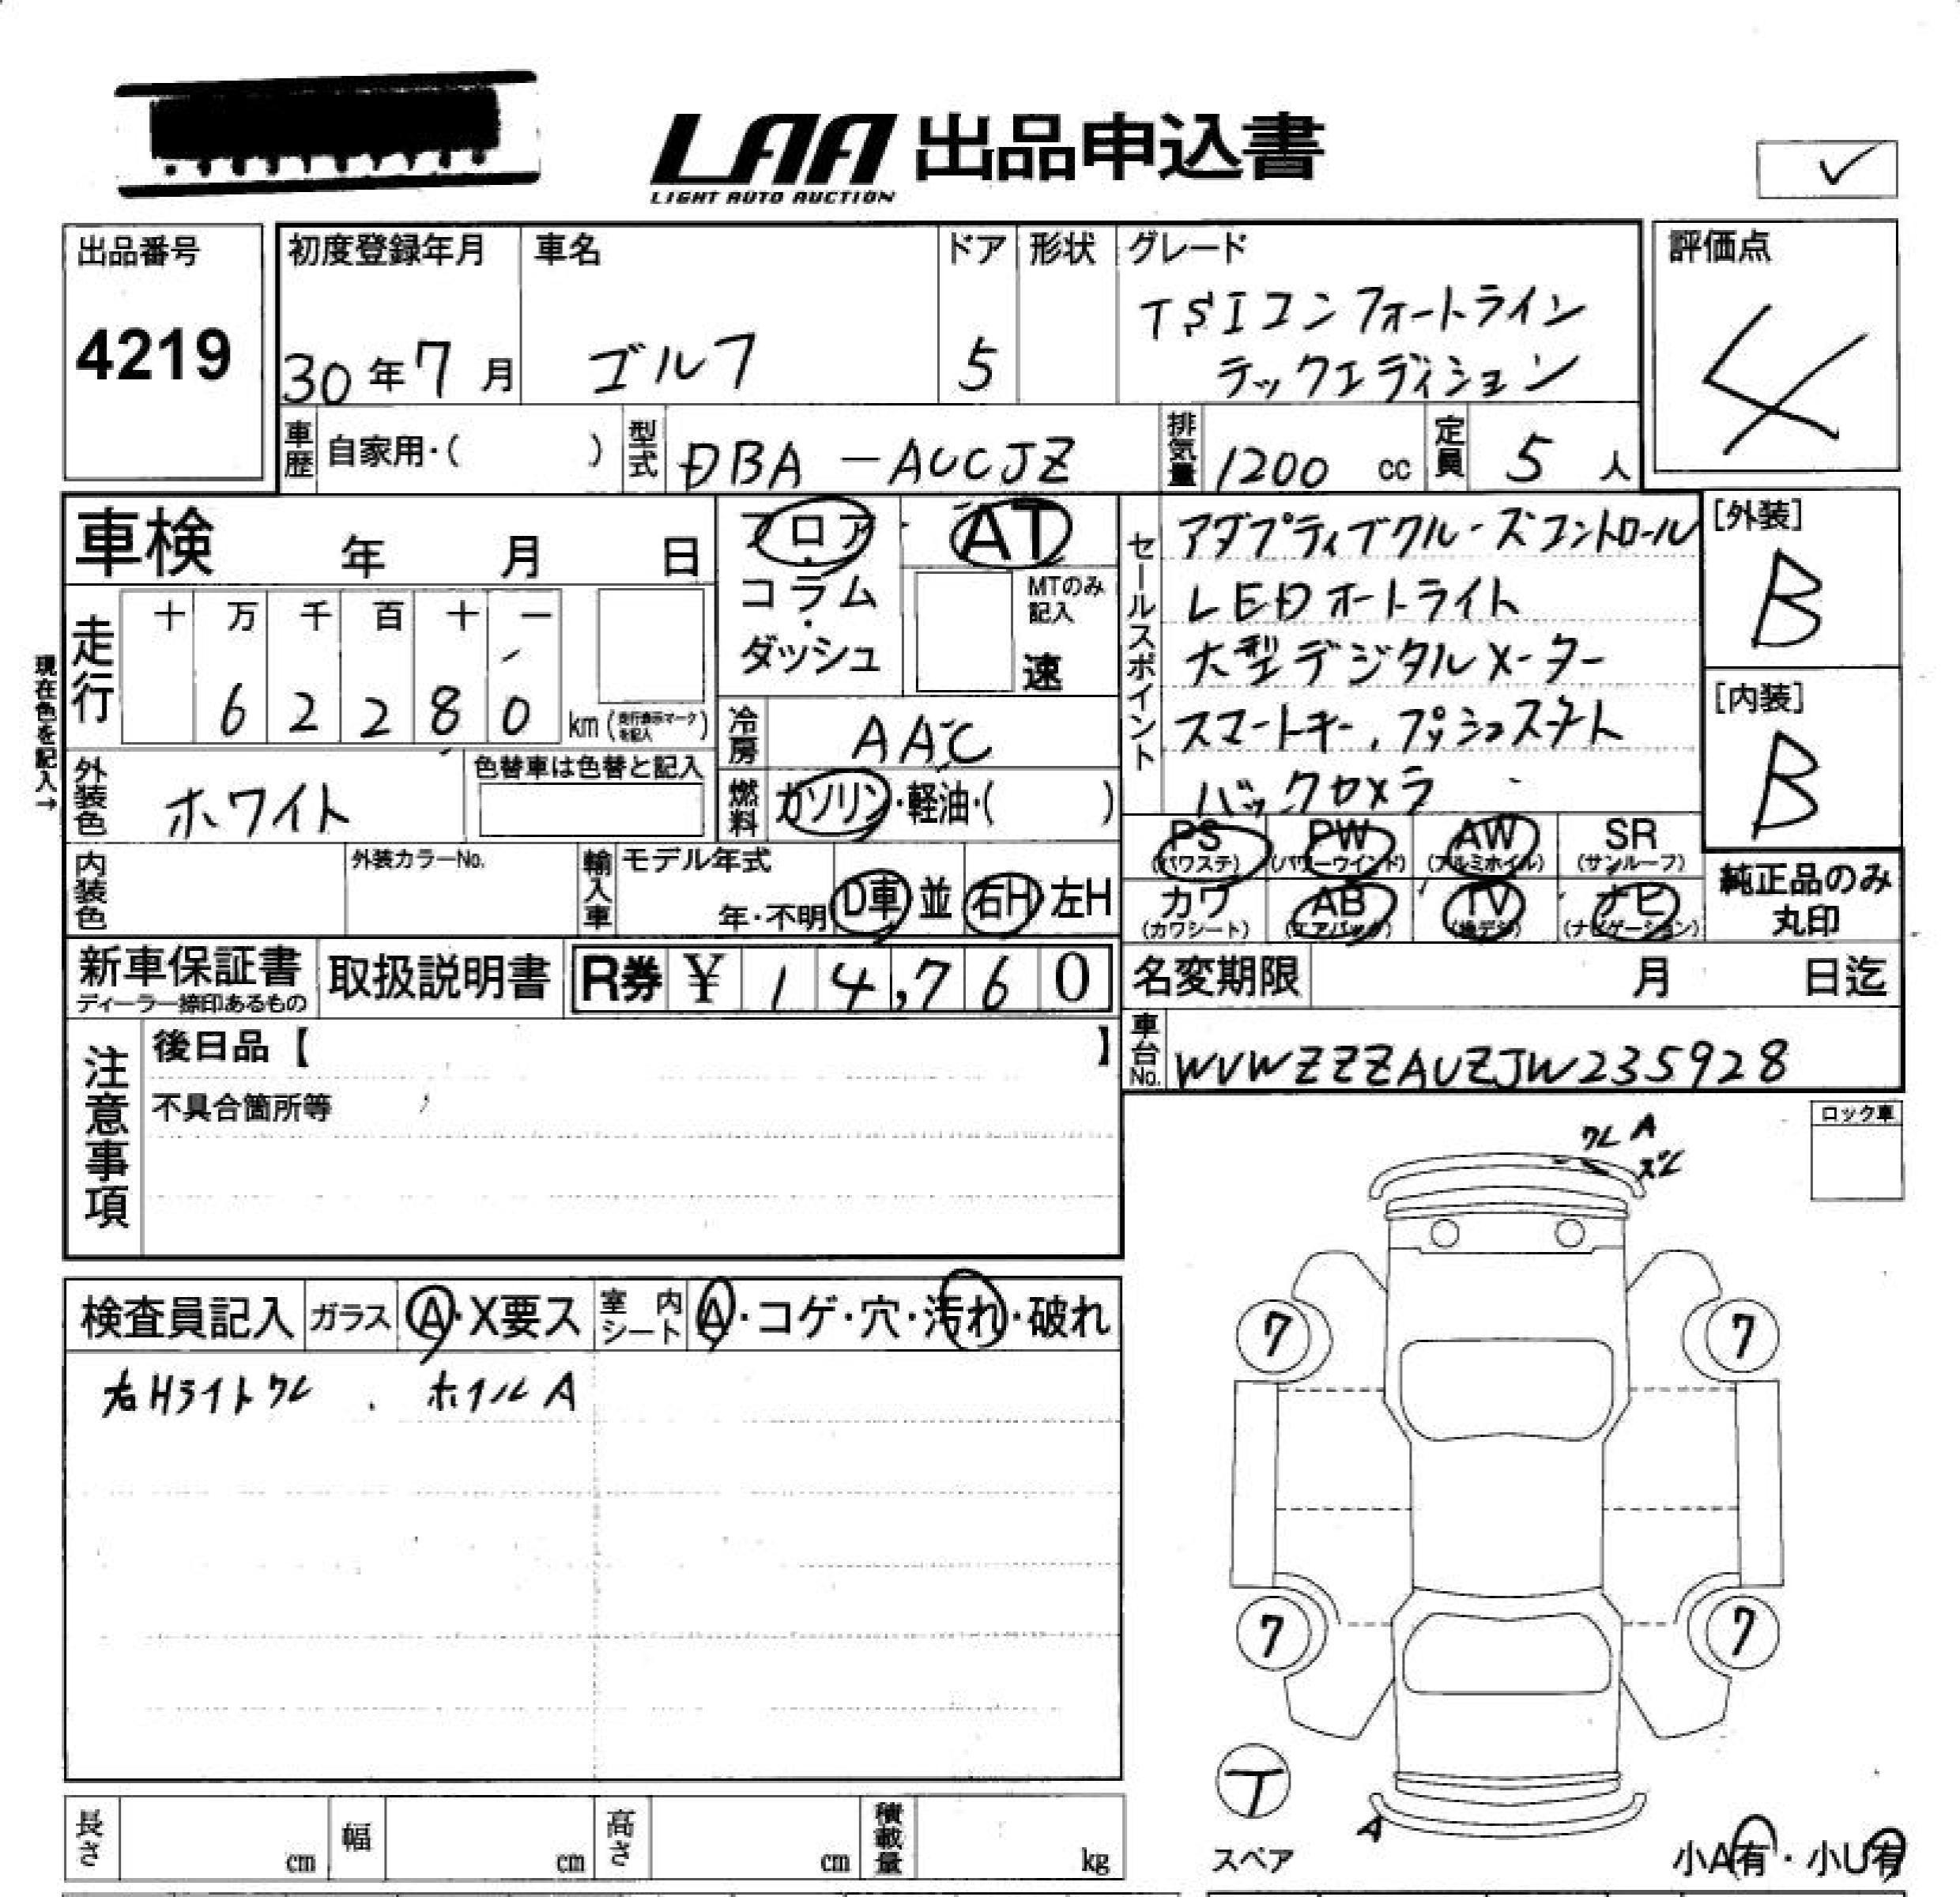 LAA 出品申込書
LIGHT AUTO AUCTION
出品番号
4219
初度登録年月
30年7月
車名
ゴルフ
ドア
5
形状
グレード
TSIコンフォートライン
テックエディション
評価点
4
車歴 自家用・( )
型式 DBA-AUCJZ
排気量 1200 cc
定員 5 人
車検 年 月 日
フロア・AT
コラム・
ダッシュ
MTのみ
記入
速
走行
十 万 千 百 十 一
6 2 2 8 0 km (走行表示マークを記入)
現在色を記入→
外装色 ホワイト
色替車は色替と記入
冷房 AAC
燃料 ガソリン・軽油・( )
内装色
外装カラーNo.
輸入車
モデル年式
年・不明
D車 並 右H 左H
セールスポイント
アダプティブクルーズコントロール
LEDオートライト
大型デジタルメーター
スマートキー,プッシュスタート
バックカメラ
[外装]
B
[内装]
B
PS
(パワステ)
PW
(パワーウインド)
AW
(アルミホイル)
SR
(サンルーフ)
カワ
(カワシート)
AB
(エアバッグ)
TV
(地デジ)
ナビ
(ナビゲーション)
純正品のみ
丸印
新車保証書
ディーラー捺印あるもの
取扱説明書
R券 ¥ 14,760
名変期限 月 日迄
車台No. WVWZZZAUZJW235928
注意事項
後日品【 】
不具合箇所等
ロック車
ワレ A
ズレ
検査員記入
ガラス A・X要ス
室内シート A・コゲ・穴・汚れ・破れ
右Hライトワレ . ホイルA
7
7
7
7
T
スペア
A
小A有・小U有
長さ cm
幅 cm
高さ cm
積載量 kg